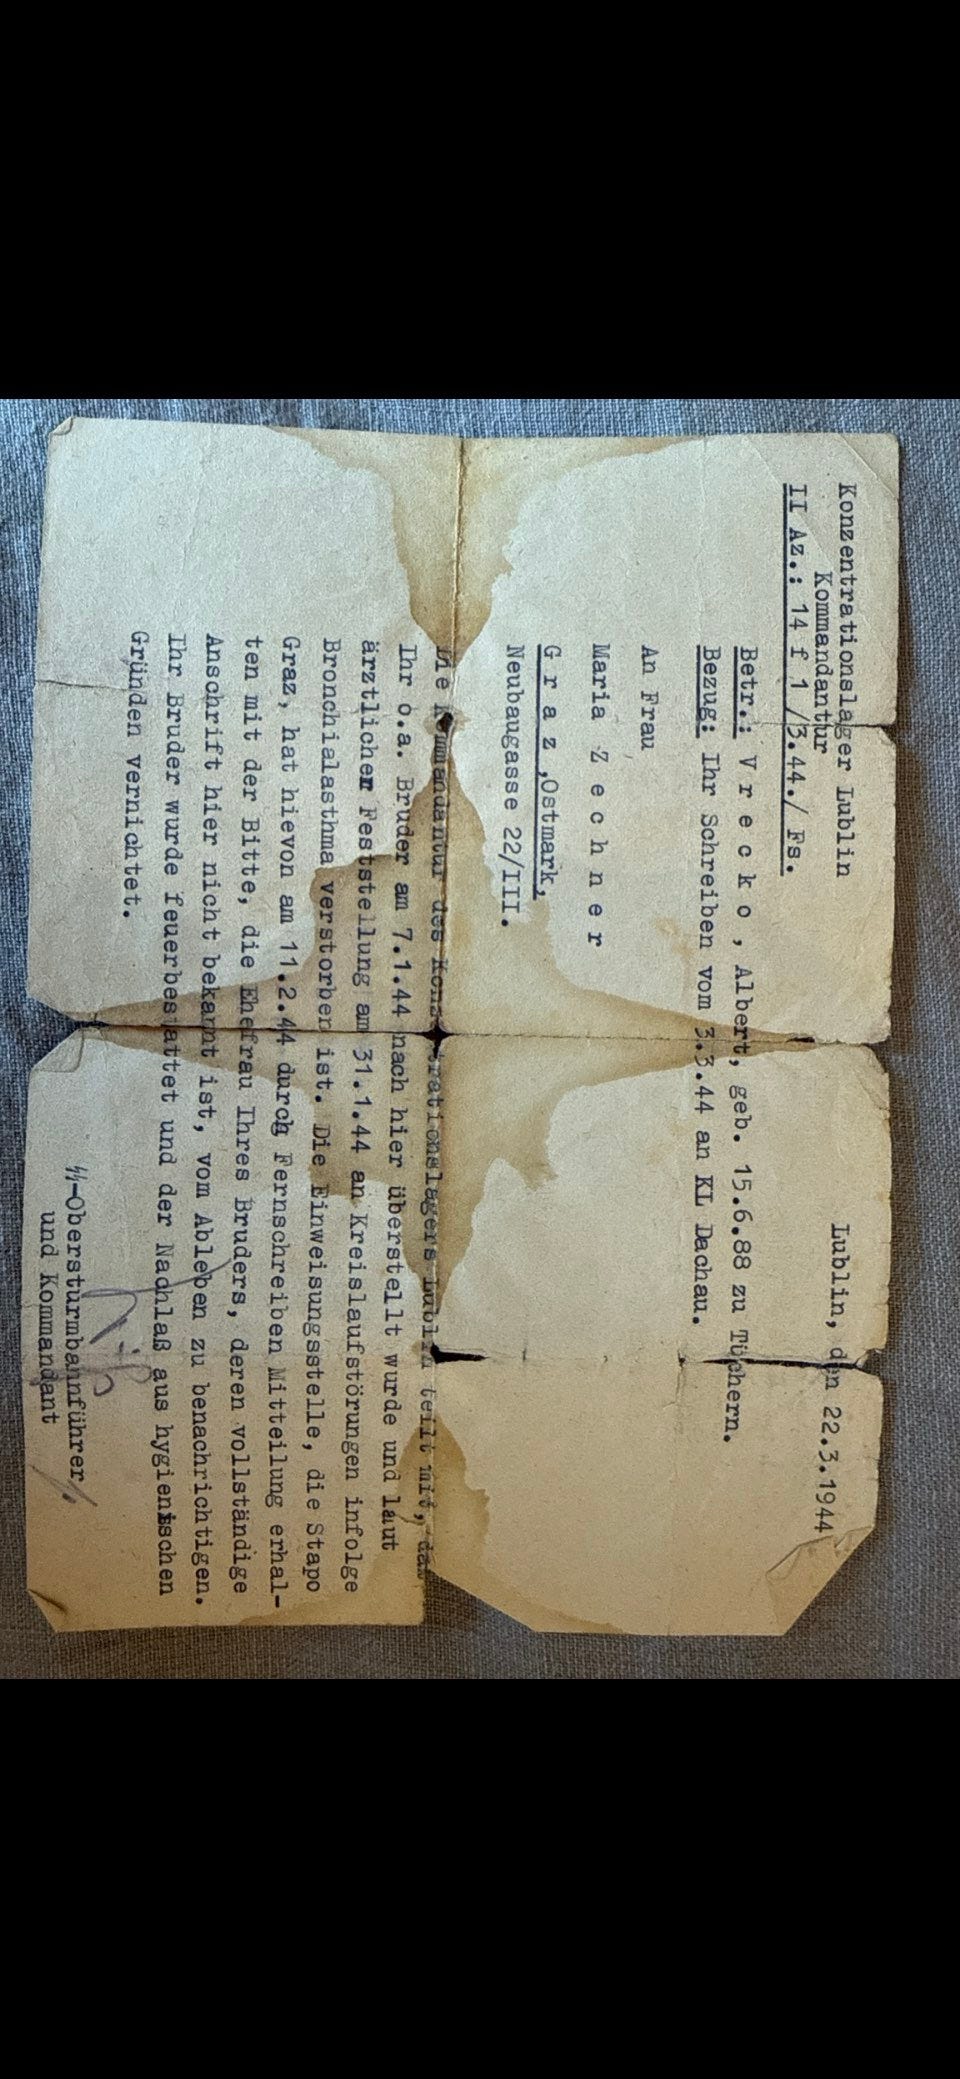 Konzentrationslager Lublin
Kommandantur
Lublin, den 22.3.1944
II Az.: 14 f 1 /3.44./ Fs.
Betr.: V r e c k o , Albert, geb. 15.6.88 zu Tüchern.
Bezug: Ihr Schreiben vom 3.3.44 an KL Dachau.
An Frau
Maria Z e c h n e r
G r a z ,Ostmark,
Neubaugasse 22/III.
Die Kommandantur des Konzentrationslagers Lublin teilt mit, das
Ihr o.a. Bruder am 7.1.44 nach hier überstellt wurde und laut
ärztlicher Feststellung am 31.1.44 an Kreislaufstörungen infolge
Bronchialasthma verstorben ist. Die Einweisungsstelle, die Stapo
Graz, hat hievon am 11.2.44 durch Fernschreiben Mitteilung erhal-
ten mit der Bitte, die Ehefrau Ihres Bruders, deren vollständige
Anschrift hier nicht bekannt ist, vom Ableben zu benachrichtigen.
Ihr Bruder wurde feuerbestattet und der Nachlaß aus hygienischen
Gründen vernichtet.
SS-Obersturmbannführer
und Kommandant